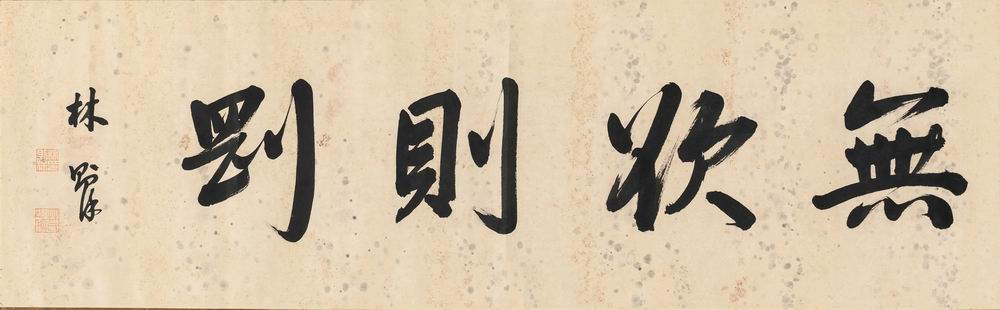 無欲則剛
林則徐